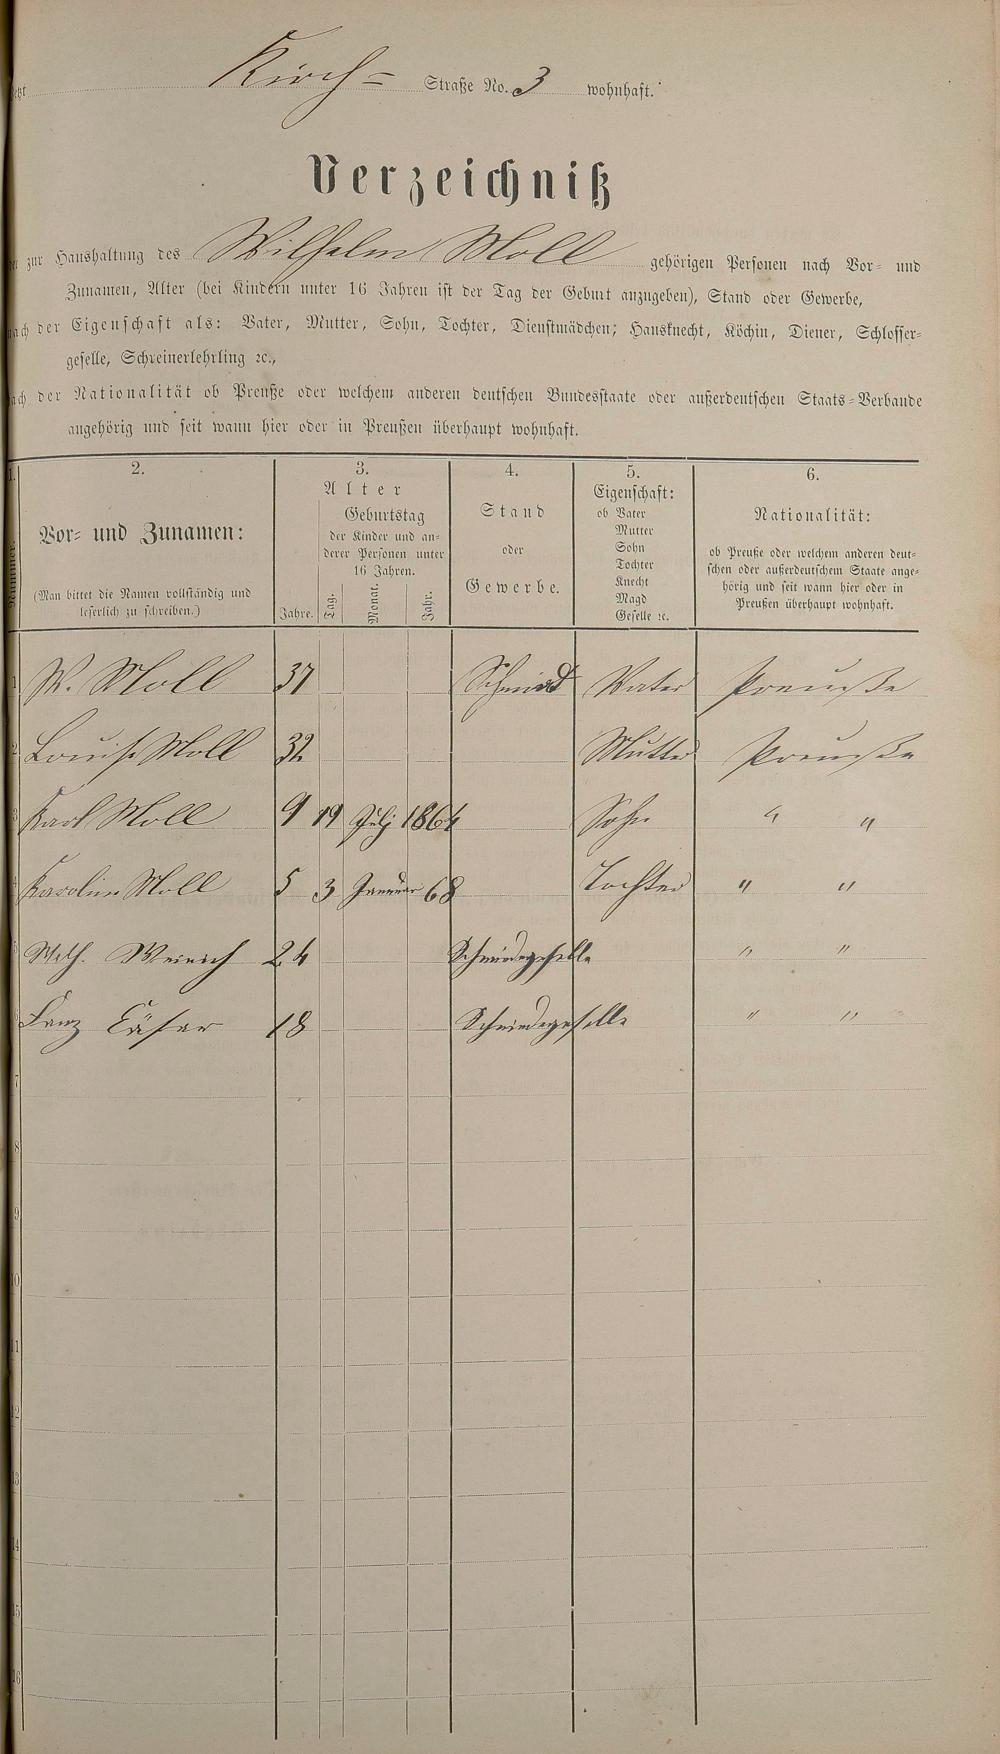 jetzt Kirch= Straße No. 3 wohnhaft.
Verzeichniß
der zur Haushaltung des Wilhelm Moll gehörigen Personen nach Vor= und
Zunamen, Alter (bei Kindern unter 16 Jahren ist der Tag der Geburt anzugeben), Stand oder Gewerbe,
nach der Eigenschaft als: Vater, Mutter, Sohn, Tochter, Dienstmädchen; Hausknecht, Köchin, Diener, Schlosser=
geselle, Schreinerlehrling ꝛc.,
nach der Nationalität ob Preuße oder welchem anderen deutschen Bundesstaate oder außerdeutschen Staats=Verbande
angehörig und seit wann hier oder in Preußen überhaupt wohnhaft.
1.
Nummer.
2.
Vor= und Zunamen:
(Man bittet die Namen vollständig und
leserlich zu schreiben.)
3.
Alter
Geburtstag
der Kinder und an=
derer Personen unter
16 Jahren.
Jahre. Tag. Monat. Jahr.
4.
Stand
oder
Gewerbe.
5.
Eigenschaft:
ob Vater
Mutter
Sohn
Tochter
Knecht
Magd
Geselle ꝛc.
6.
Nationalität:
ob Preuße oder welchem anderen deut=
schen oder außerdeutschem Staate ange=
hörig und seit wann hier oder in
Preußen überhaupt wohnhaft.
1 W. Moll 37 Schmied Vater Preuße
2 Louise Moll 32 Mutter Preuße
3 Karl Moll 9 19 Juli 1864 Sohn " "
4 Karolin Moll 5 3 Januar 68 Tochter " "
5 Math. Weirich 24 Schmiedegeselle " "
6 Franz Cäsar 18 Schmiedegeselle " "
7
8
9
10
11
12
13
14
15
16